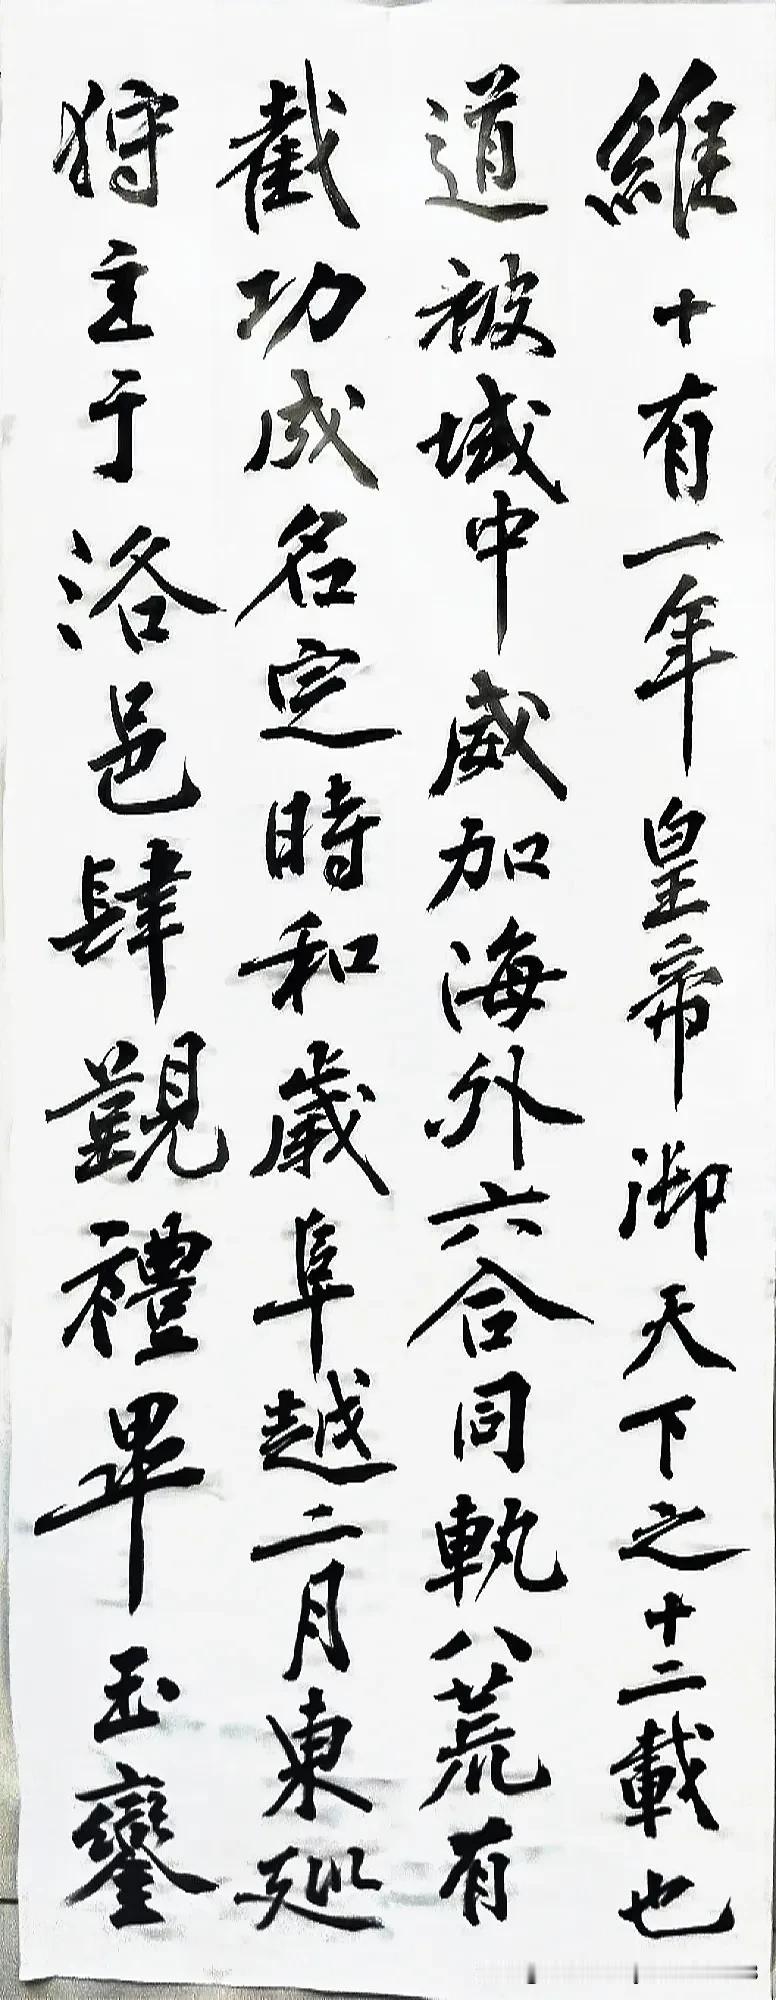 維十有一年皇帝御天下之十二載也
道被域中威加海外六合同軌八荒有
截功成名定時和歲阜越二月東廵
狩至于洛邑肆覲禮畢玉鑾